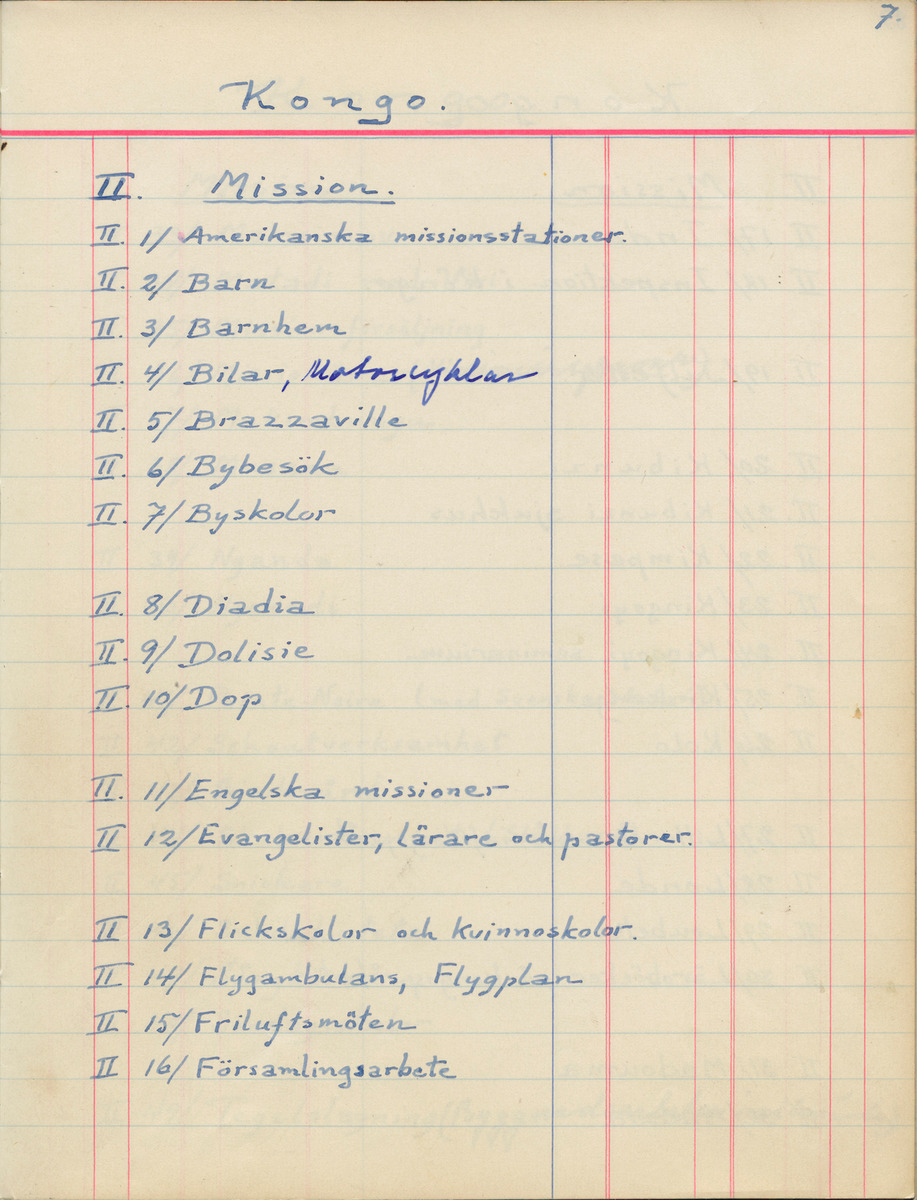 7.
Kongo.
II. Mission.
II. 1/ Amerikanska missionsstationer.
II. 2/ Barn
II. 3/ Barnhem
II. 4/ Bilar, Motorcyklar
II. 5/ Brazzaville
II. 6/ Bybesök
II. 7/ Byskolor
II. 8/ Diadia
II. 9/ Dolisie
II. 10/ Dop
II. 11/ Engelska missioner
II 12/ Evangelister, lärare och pastorer.
II 13/ Flickskolor och kvinnoskolor.
II 14/ Flygambulans, Flygplan
II 15/ Friluftsmöten
II 16/ Församlingsarbete